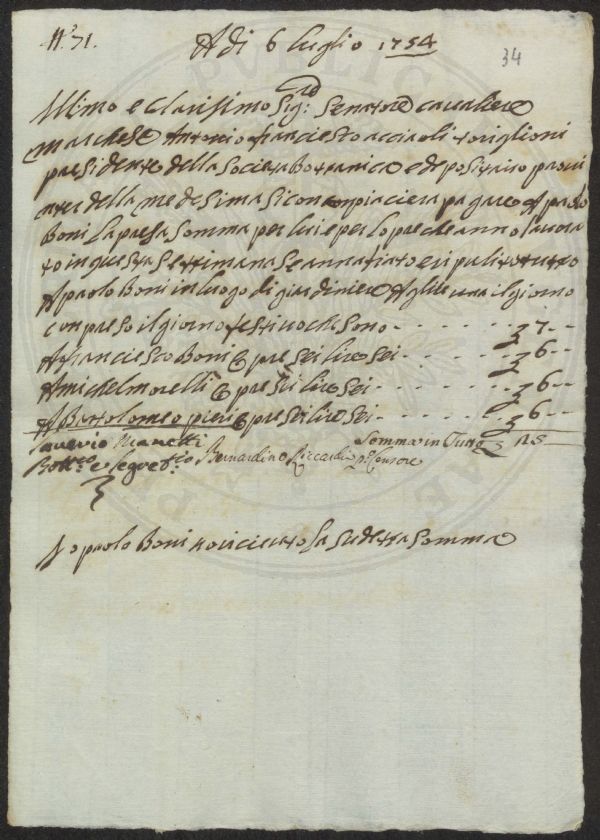 N.° 71.
A di 6 luglio 1754
34
Illmo e Clarissimo Sig.re Senatore Cavaliere
Marchese Antonio Franciesco Acciaioli Toriglioni
presidente della Societa Botanica e depositario
della medesima si compiaciera pagare A paolo
Boni la presa somma per lui e per lo pre che anno lavora
to in questa settimana e ripulito tutto
A paolo Boni in luogo di giardiniere il giorno
compreso il giorno festivo che sono - - - - - - - 7 - -
A franciesco Boni pre sei lire sei - - - - - - - 6 - -
A michel morelli pre sei lire sei - - - - - - - 6 - -
A Bartolomeo pieri pre sei lire sei - - - - - 6 - -
Saverio Manetti Somma in tutto 25
Bott.co e Segret.rio Bernardino Riccardi p.o Censore
Io paolo Boni o ricieuto la sudetta somma